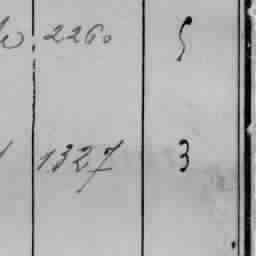 2260 5
1327 3